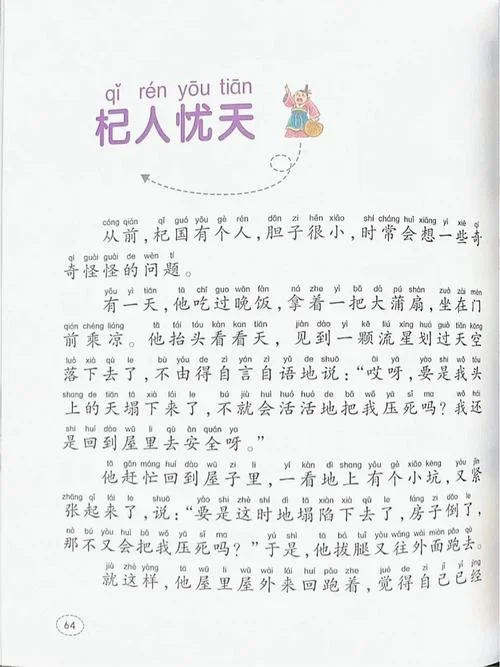 qǐ rén yōu tiān
杞人忧天
cóng qián qǐ guó yǒu gè rén dǎn zi hěn xiǎo shí cháng huì xiǎng yì xiē qí
从前，杞国有个人，胆子很小，时常会想一些奇
qí guài guài de wèn tí
奇怪怪的问题。
yǒu yì tiān tā chī guo wǎn fàn ná zhe yì bǎ dà pú shàn zuò zài mén
有一天，他吃过晚饭，拿着一把大蒲扇，坐在门
qián chéng liáng tā tái tóu kàn kan tiān jiàn dào yì kē liú xīng huá guò tiān kōng
前乘凉。他抬头看看天，见到一颗流星划过天空
luò xià qù le bù yóu de zì yán zì yǔ de shuō āi yā yào shi wǒ tóu
落下去了，不由得自言自语地说：“哎呀，要是我头
shang de tiān tā xià lái le bú jiù huì huó huó de bǎ wǒ yā sǐ ma wǒ hái
上的天塌下来了，不就会活活地把我压死吗？我还
shi huí dào wū li qù ān quán ya
是回到屋里去安全呀。”
tā gǎn máng huí dào wū zi li yí kàn dì shang yǒu gè xiǎo kēng yòu jǐn
他赶忙回到屋子里，一看地上有个小坑，又紧
zhāng qǐ lái le shuō yào shi zhè shí dì tā xiàn xià qù le fáng zi dǎo le
张起来了，说：“要是这时地塌陷下去了，房子倒了，
nà bú yòu huì bǎ wǒ yā sǐ ma yú shì tā bá tuǐ yòu wǎng wài miàn pǎo qù
那不又会把我压死吗？”于是，他拔腿又往外面跑去。
jiù zhè yàng tā wū li wū wài lái huí pǎo zhe jué de zì jǐ yǐ jīng
就这样，他屋里屋外来回跑着，觉得自己已经
64